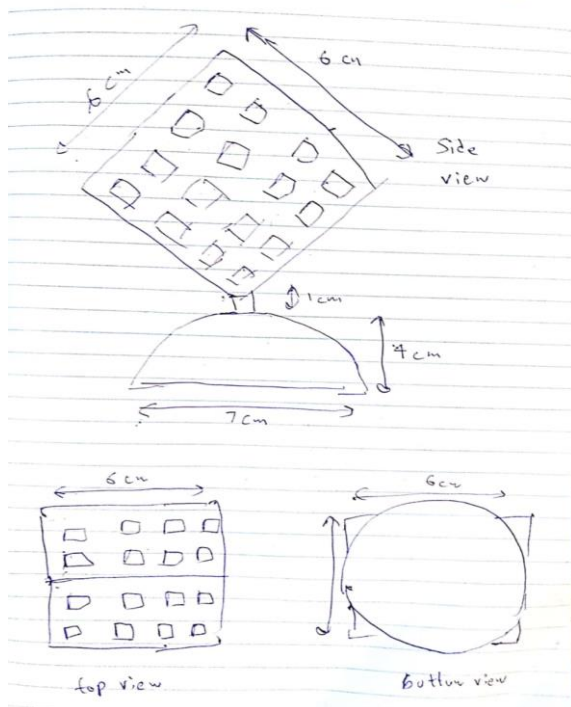 6 cm
6 cm
Side
view
1cm
4 cm
7 cm
6 cm
6cm
top view
buttum view